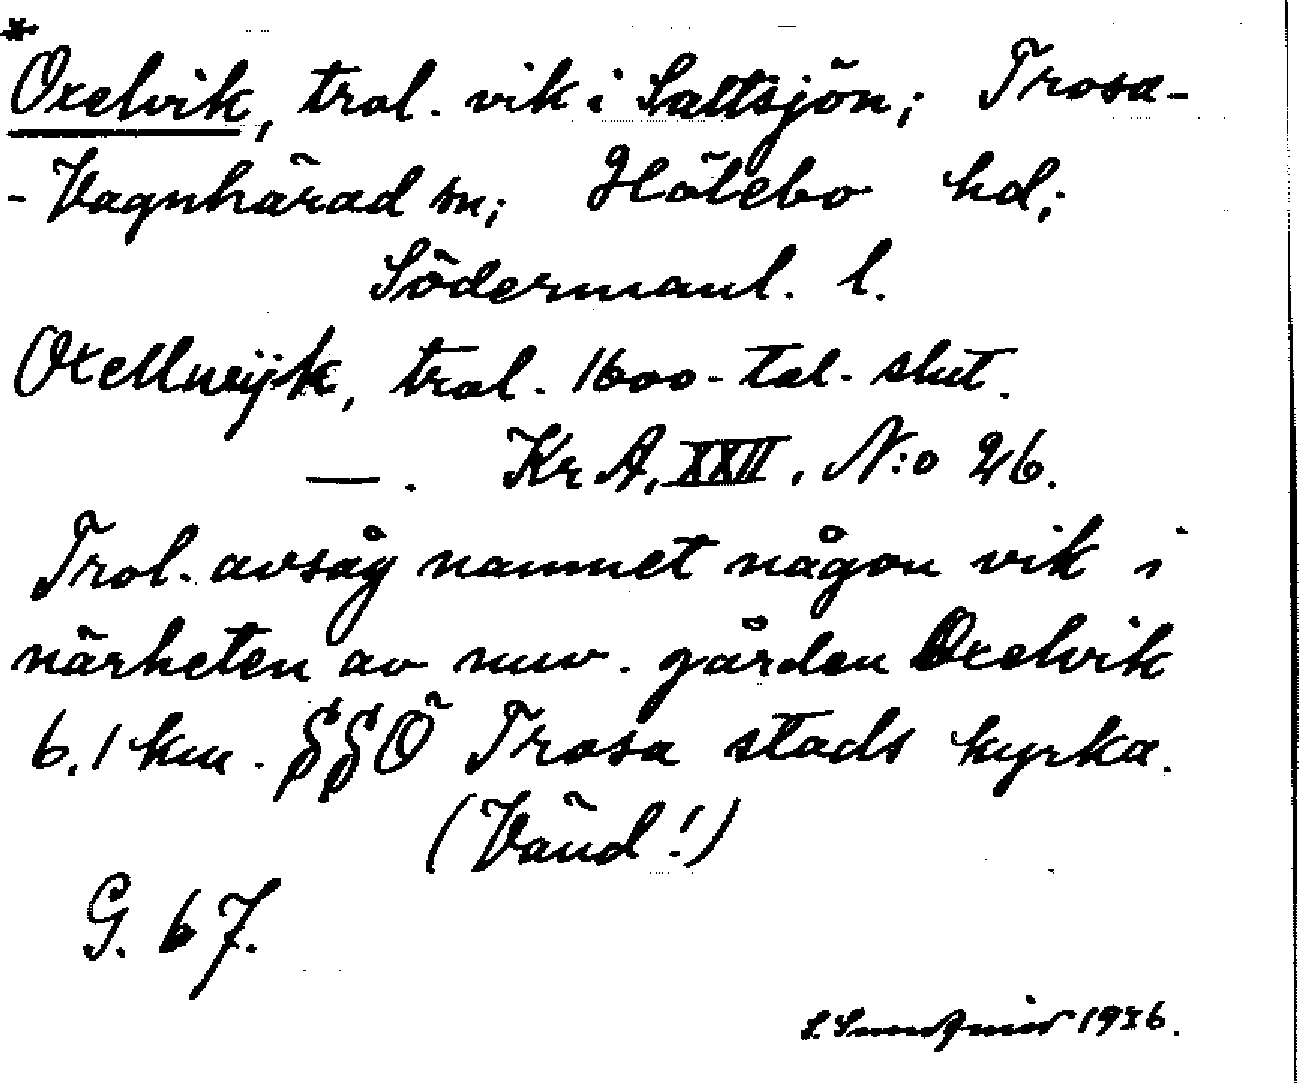 *
Oxelvik, trol. vik i Saltsjön; Trosa-
-Vagnhärad sn; Hölebo hd;
Södermanl. l.
Oxellweijk, trol. 1600-tal. slut.
—. Kr A, XXII, N:o 26.
Trol. avsåg namnet någon vik i
närheten av nuv. gården Oxelvik
6,1 km. SSÖ Trosa stads kyrka.
(Vänd!)
G. 67.
S. Sundqvist 1936.